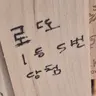 로또
1등 5번
당첨